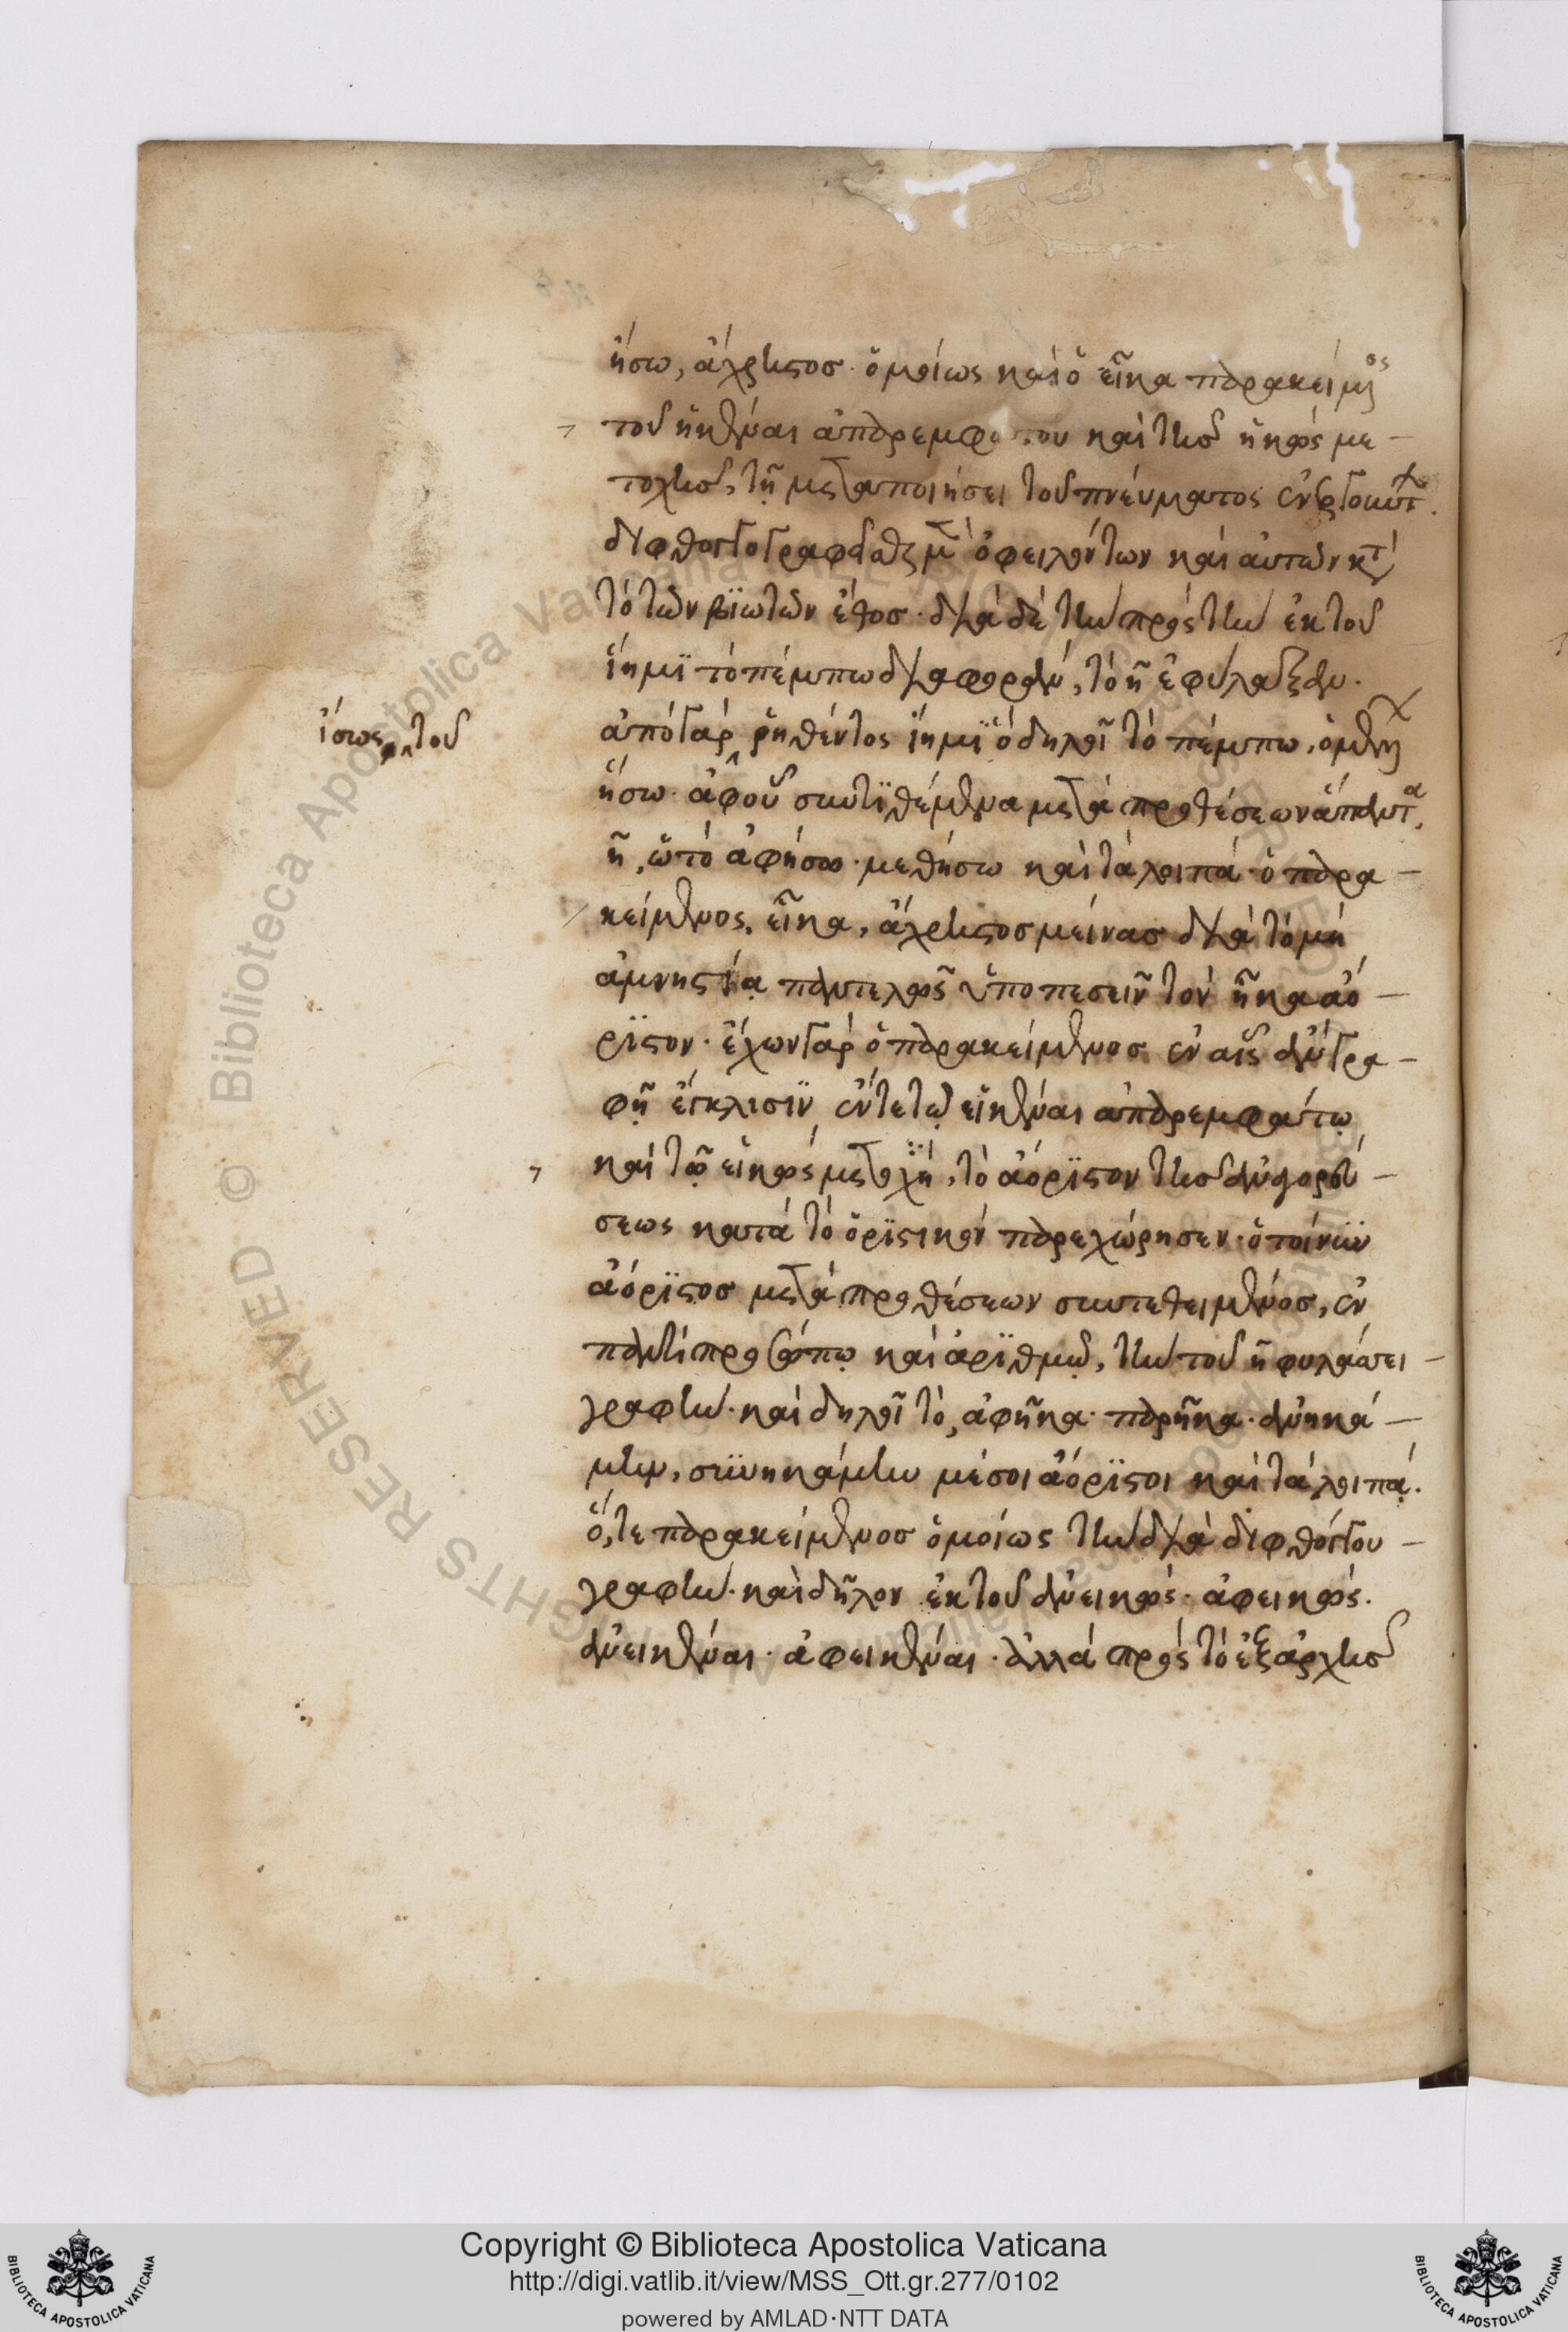 ἥσω, ἄχρηστος. ὁμοίως καὶ ὁ εἷκα παρακείμενος
τοῦ ἡκέναι ἀπαρεμφάτου καὶ τῆς ἡκὼς με-
τοχῆς, τῇ μεταποιήσει τοῦ πνεύματος
διφθογγογραφεῖσθαι μὲν ὀφειλόντων καὶ αὐτῶν κατὰ
τὸ τῶν βοιωτῶν ἔθος. διὰ δὲ τὴν πρὸς τὴν ἐκ τοῦ
ἵημι τὸ πέμπω διαφορὰν, τὸ η ἐφύλαξαν.
ἀπὸ γὰρ ῥηθέντος ἵημι ὃ δηλοῖ τὸ πέμπω, ὁ μέλλων
ἥσω. ἀφ' οὗ συντιθέμενα μετὰ προθέσεων ἅπαντα,
ἢ, ὡς τὸ ἀφήσω. μεθήσω καὶ τὰ λοιπά. ὁ παρα-
κείμενος, εἷκα, ἄχρηστος μείνας διὰ τὸ μὴ
ἀμνηστίᾳ παντελῶς ὑποπεσεῖν τὸν ἧκα ἀό-
ριστον. ἔχων γὰρ ὁ παρακείμενος ἐν αἷς ἀναγρα-
φῇ ἔγκλισιν ἔν τε τῷ εἱκέναι ἀπαρεμφάτῳ
καὶ τῷ εἱκὼς μετοχῇ, τὸ ἀόριστον τῆς ἀναγορεύ-
σεως κατὰ τὸ ὁριστικὸν παρεχώρησεν. ὁ τοίνυν
ἀόριστος μετὰ προθέσεων συντεθειμένος, ἐν
παντὶ προσώπῳ καὶ ἀριθμῷ, τὴν τοῦ η φυλάττει
γραφήν. καὶ δηλοῖ τὸ, ἀφῆκα. παρῆκα. ἀνηκά-
μην, συνηκάμην μέσοι ἀόριστοι καὶ τὰ λοιπά.
ὅ, τε παρακείμενος ὁμοίως τὴν διὰ διφθόγγου
γραφήν. καὶ δῆλον ἐκ τοῦ ἀνεικώς. ἀφεικώς.
ἀνεικέναι. ἀφεικέναι. ἀλλὰ πρὸς τὸ ἐξ ἀρχῆς
ἴσως, τοῦ
Copyright © Biblioteca Apostolica Vaticana
http://digi.vatlib.it/view/MSS_Ott.gr.277/0102
powered by AMLAD·NTT DATA
BIBLIOTECA APOSTOLICA VATICANA
BIBLIOTECA APOSTOLICA VATICANA